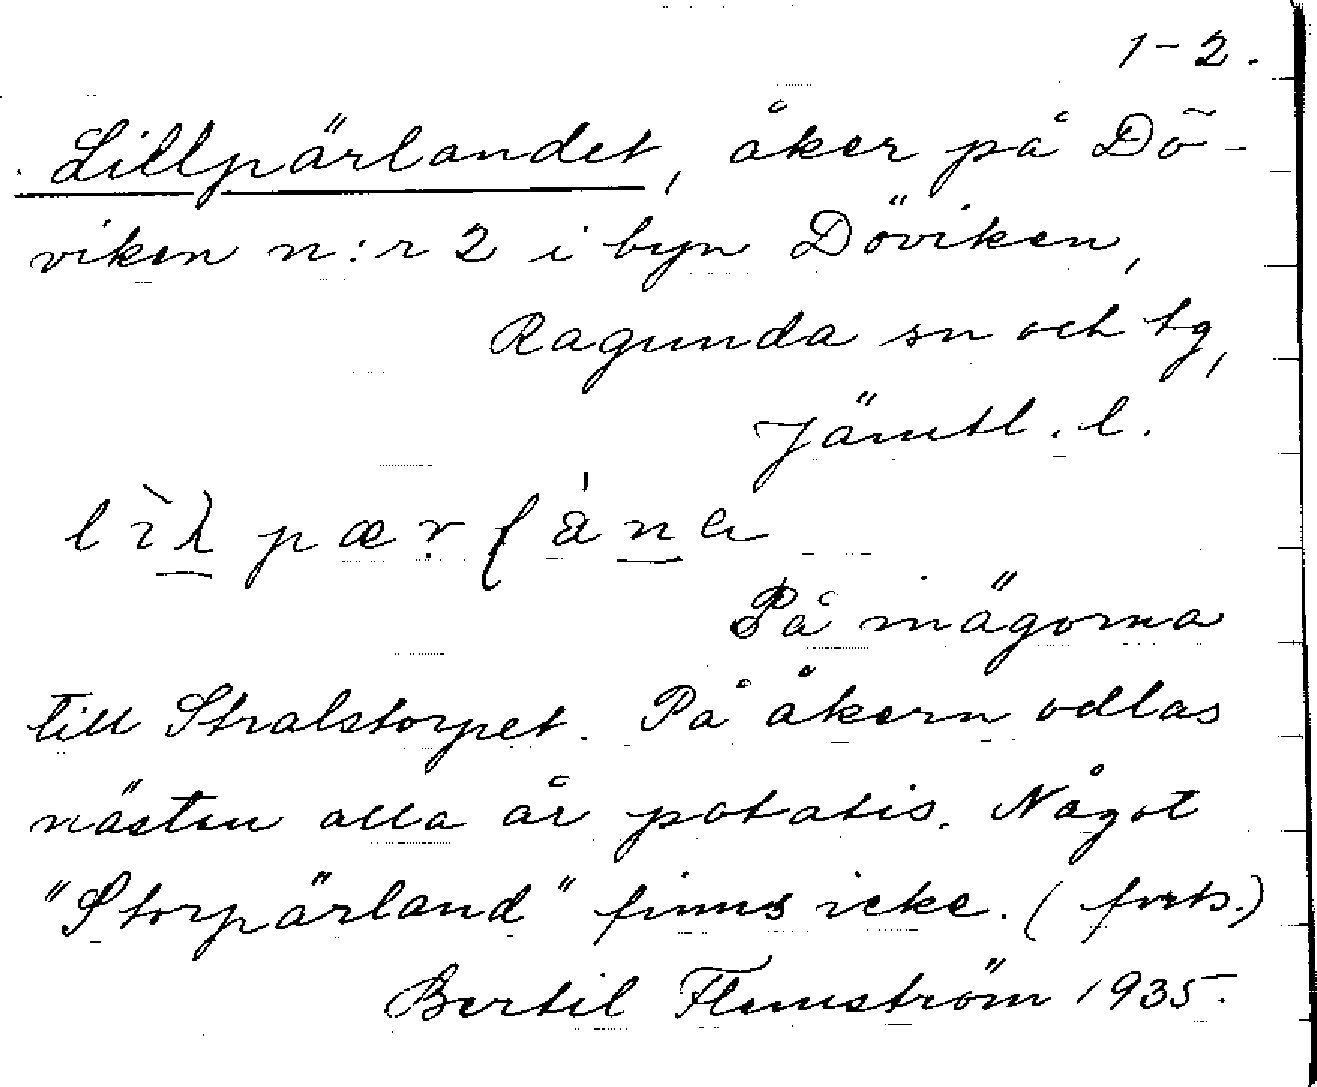 1-2.
Lillpärlandet, åker på Dö-
viken n:r 2 i byn Döviken,
Ragunda sn och tg,
Jämtl. l.
På inägorna
till Stralstorpet. På åkern odlas
nästan alla år potatis. Något
"Storpärland" finns icke. (forts.)
Bertil Flemström 1935.